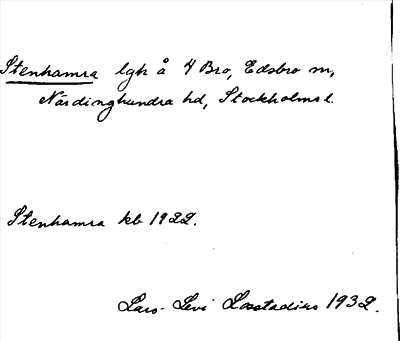 Stenhamra lgh å 4 Bro, Edsbro sn,
Närdinghundra hd, Stockholms l.
Stenhamra kb 1922.
Lars-Levi Læstadius 1932.